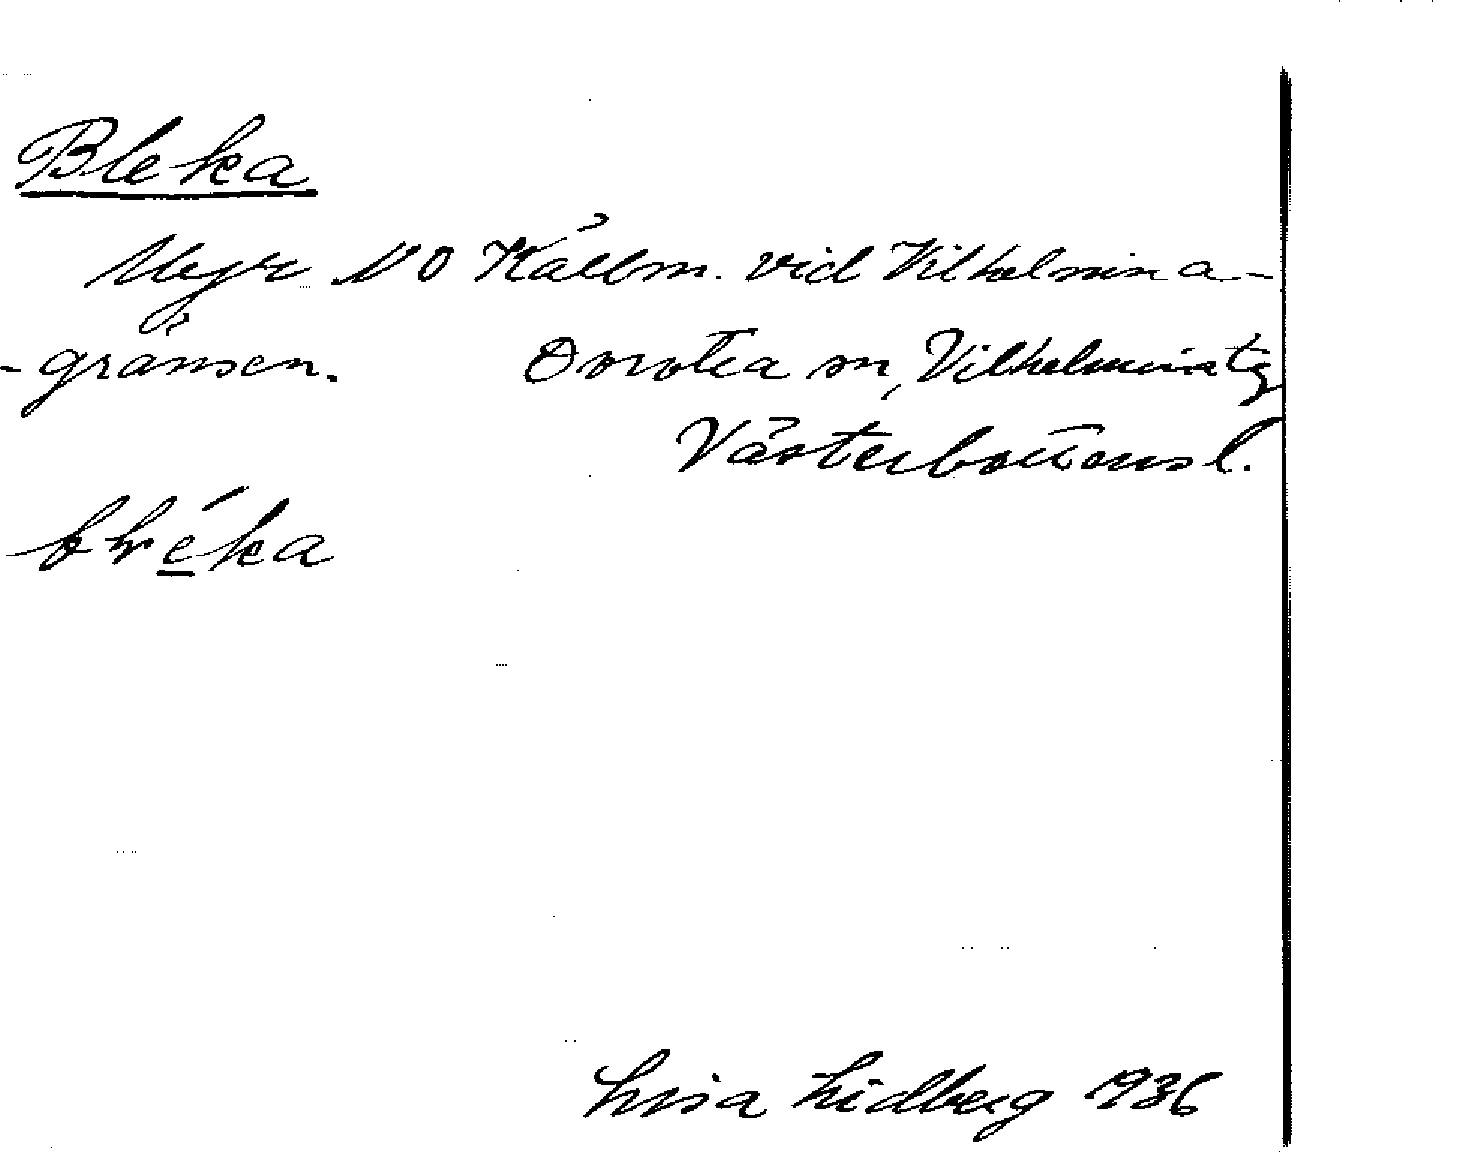 Bleka
Myr NO Källm. vid Vilhelmina-
-gränsen. Dorotea sn, Vilhelmina tg
Västerbottens l.
bḷe̲̒ka
Lisa Lidberg 1936